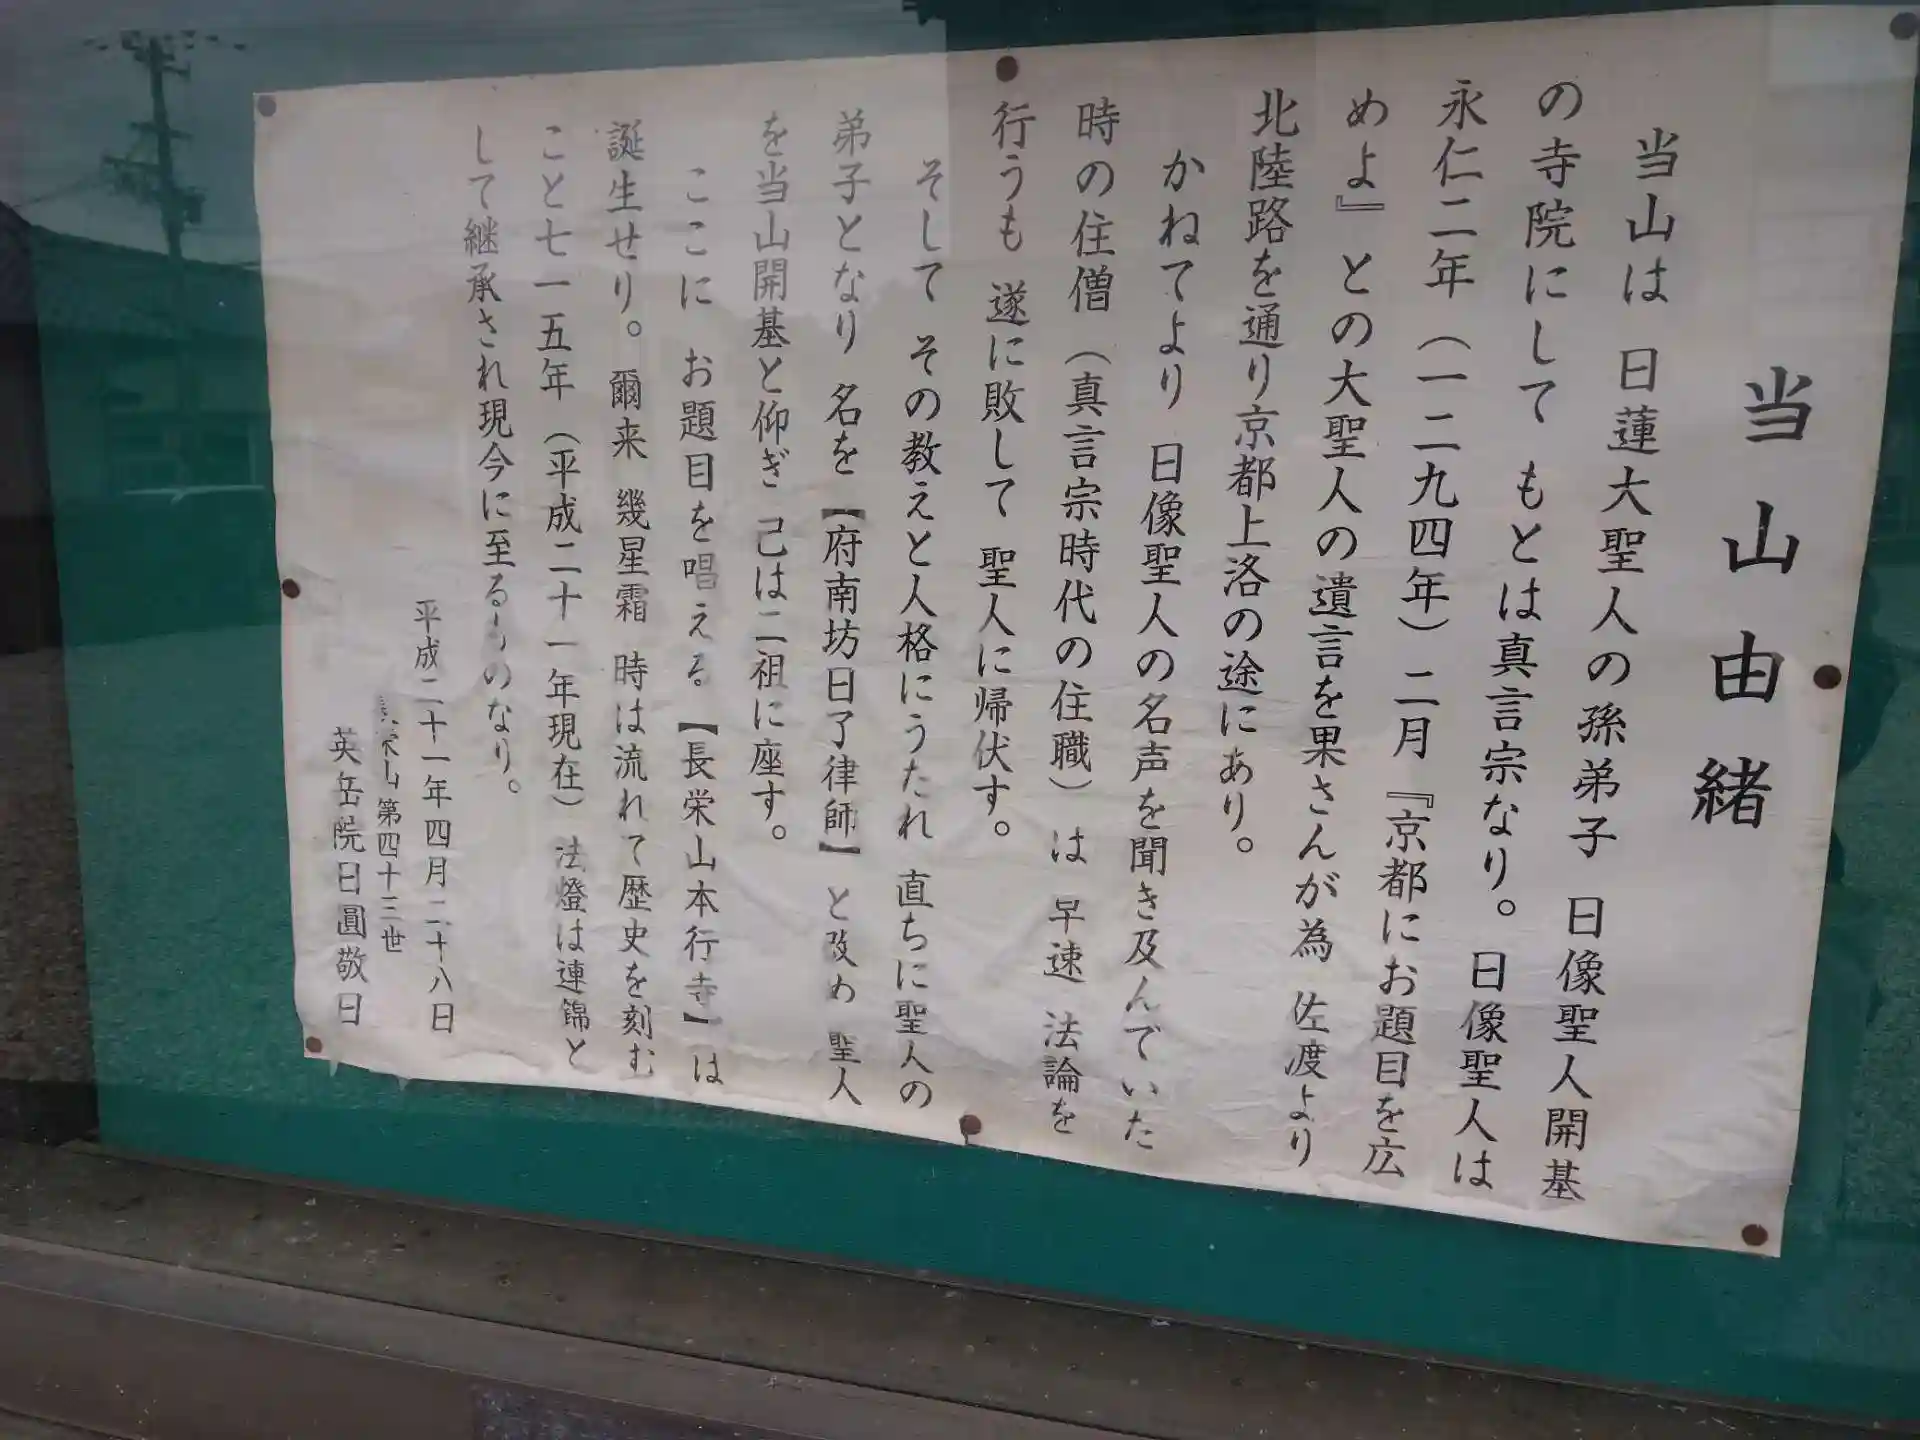 当山由緒
当山は 日蓮大聖人の孫弟子 日像聖人開基
の寺院にして もとは真言宗なり。日像聖人は
永仁二年（一二九四年）二月『京都にお題目を広
めよ』との大聖人の遺言を果さんが為 佐渡より
北陸路を通り京都上洛の途にあり。
かねてより 日像聖人の名声を聞き及んでいた
時の住僧（真言宗時代の住職）は 早速 法論を
行うも 遂に敗して 聖人に帰伏す。
そして その教えと人格にうたれ 直ちに聖人の
弟子となり 名を【府南坊日了律師】と改め 聖人
を当山開基と仰ぎ 己は二祖に座す。
ここに お題目を唱える【長栄山本行寺】は
誕生せり。爾来 幾星霜 時は流れて歴史を刻む
こと七一五年（平成二十一年現在）法燈は連錦と
して継承され現今に至るものなり。
平成二十一年四月二十八日
栄山第四十三世
英岳院日圓敬白